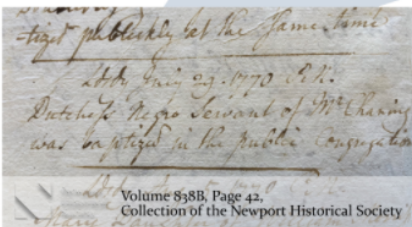 tized publickly at the same time
Lds Dy July 29. 1770 P.M.
Dutchess Negro Servant of Mr Chaning
was baptized in the public Congregation
1770
Mary Daughter of
Volume 838B, Page 42,
Collection of the Newport Historical Society